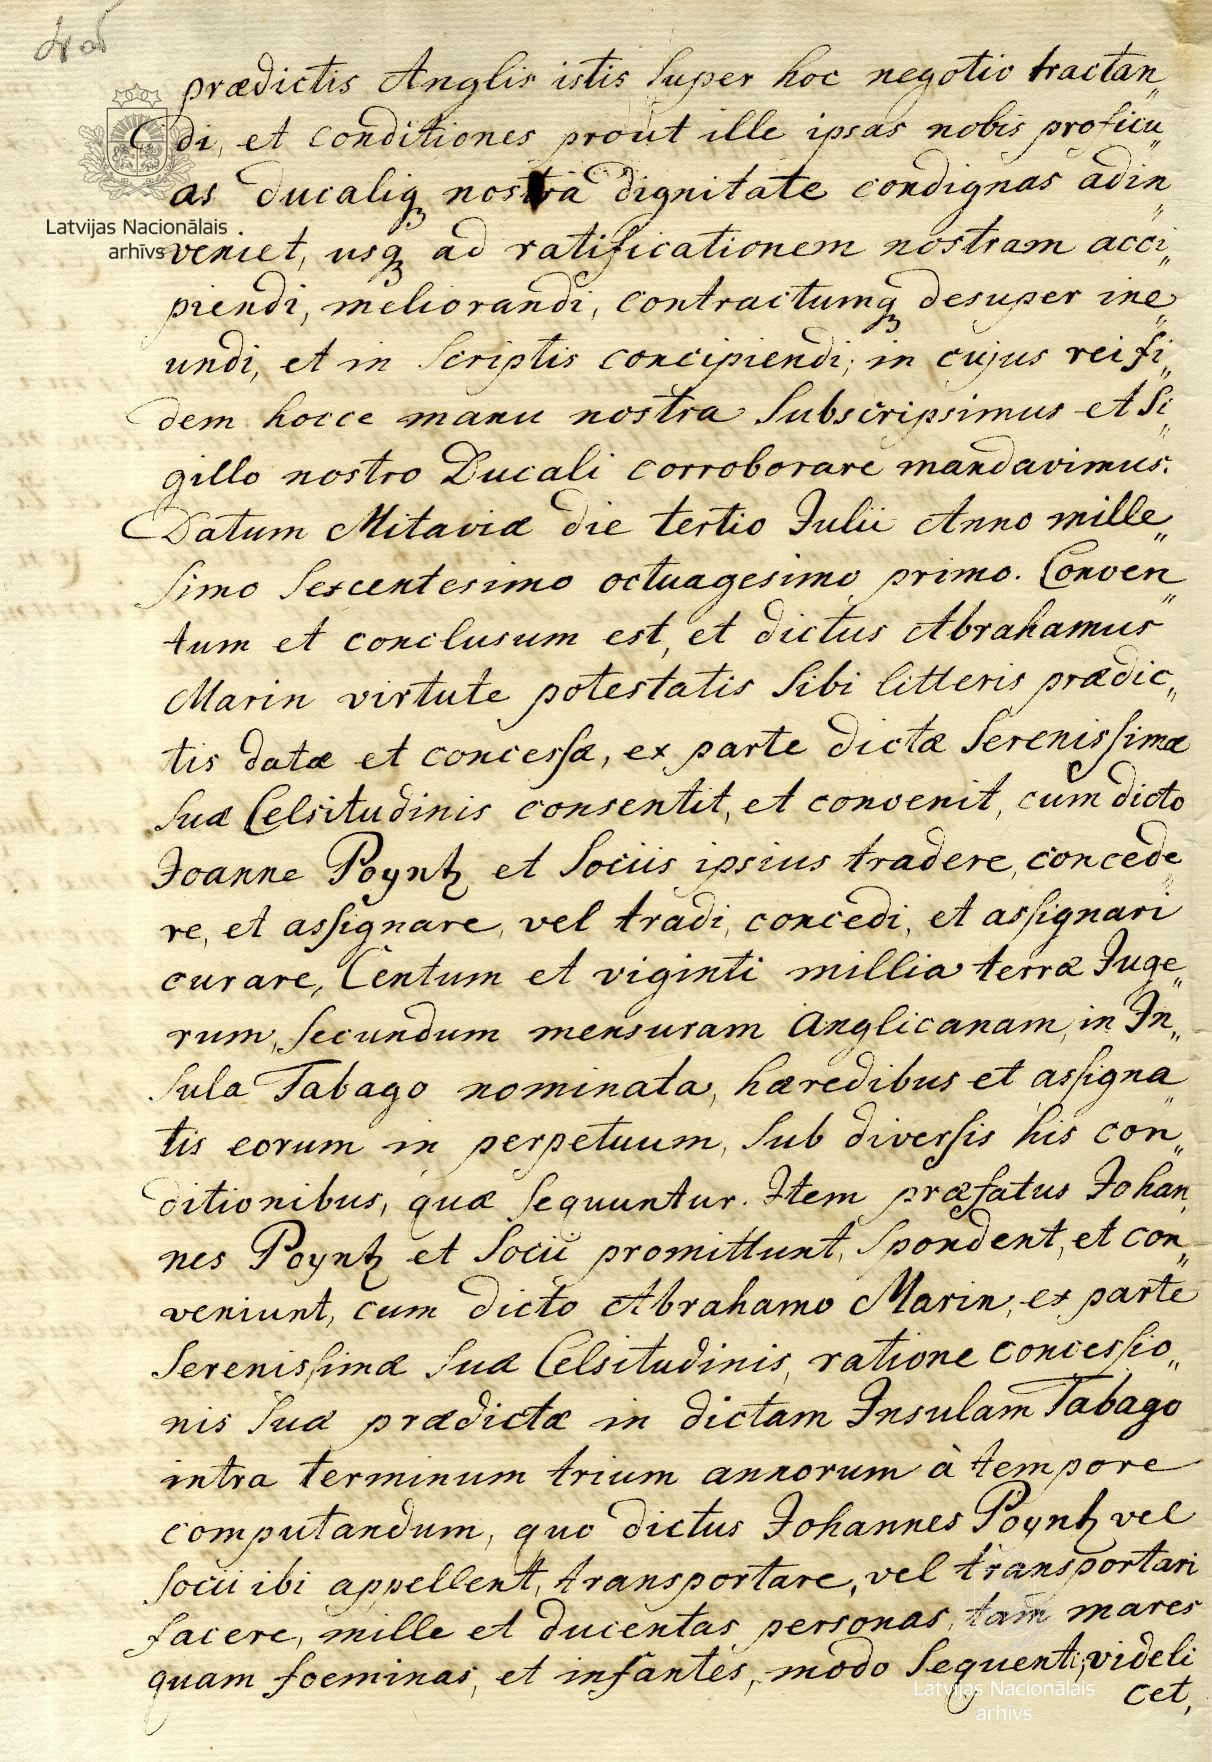 prædictis Anglis istis super hoc negotio tractan„
di, et conditiones prout ille ipsas nobis proficu„
as ducaliq3 nostra dignitate condignas adin„
Latvijas Nacionālais
arhīvs
veniet, usq3 ad ratificationem nostram acci„
piendi, meliorandi, contractumq3 desuper ine„
undi, et in scriptis concipiendi; in cujus rei fi„
dem hocce manu nostra subscripsimus et si„
gillo nostro Ducali corroborare mandavimus.
Datum Mitaviæ die tertio Julii Anno mille„
simo sexcentesimo octuagesimo primo. Conven„
tum et conclusum est, et dictus Abrahamus
Marin virtute potestatis sibi litteris prædic„
tis datæ et concessæ, ex parte dictæ serenissimæ
suæ Celsitudinis consentit, et convenit, cum dicto
Joanne Poyntz et sociis ipsius tradere, concede„
re, et assignare, vel tradi, concedi, et assignari
curare, Centum et viginti millia terræ Juge„
rum, secundum mensuram Anglicanam, in In„
sula Tabago nominata, hæredibus et assigna„
tis eorum in perpetuum, sub diversis his con„
ditionibus, quæ sequuntur. Item præfatus Johan„
nes Poyntz et socii promittunt, spondent, et con„
veniunt, cum dicto Abrahamo Marin, ex parte
serenissimæ suæ Celsitudinis, ratione concessio„
nis suæ prædictæ in dictam Insulam Tabago
intra terminum trium annorum à tempore
computandum, quo dictus Johannes Poyntz vel
socii ibi appellent, transportare, vel transportari
facere, mille et ducentas personas, tam mares
quam foeminas, et infantes, modo sequenti, videli
cet,
Latvijas Nacionālais
arhīvs